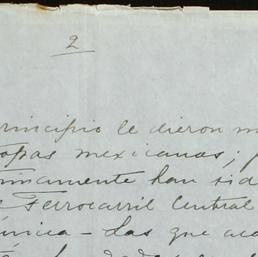 2
rincipio le dieron m
opas mexicanas; p
timamente han sid
e Ferrocarril Central
única - Las que aca